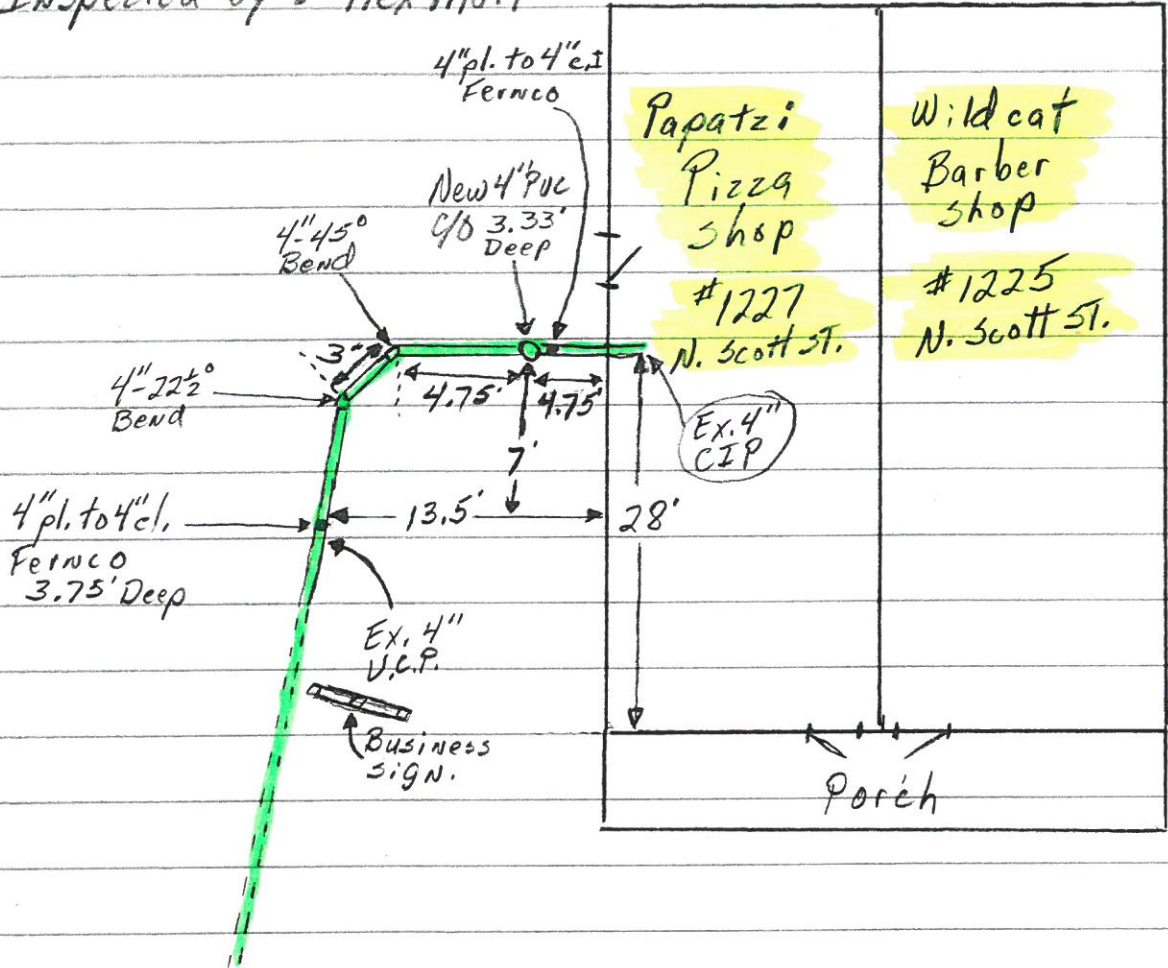 Inspected by
4"pl. to 4"c.I
Fernco
Papatzi
Pizza
shop
#1227
N. Scott ST.
Wildcat
Barber
shop
#1225
N. Scott ST.
New 4" PVC
c/o 3.33'
Deep
4"-45°
Bend
3'
4"-22½°
Bend
4.75'
4.75'
7'
Ex. 4"
CIP
13.5'
28'
4"pl. to 4"cl.
Fernco
3.75' Deep
Ex. 4"
V.C.P.
Business
sign.
Porch